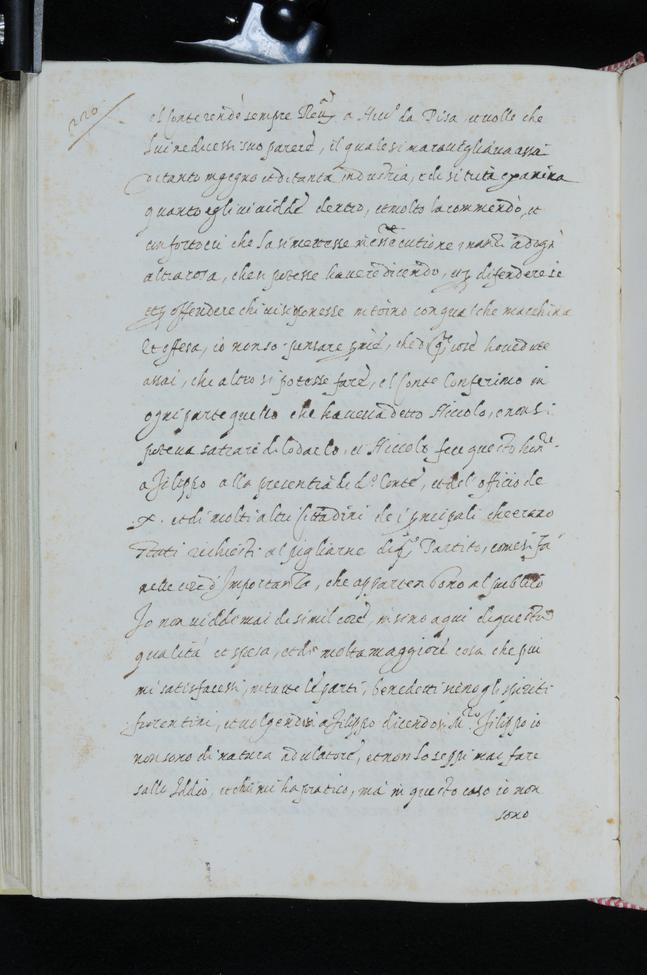 220
el conte rendè sempre a Nic.º da Pisa, et volle che
lui ne dicessi suo parere, il quale si maravigliava assai
di tanto ingegno et di tanta industria, et di si tutà examina
quanto egli vi vidde dentro, et molto la commendò, et
confortoui che la si mettesse in essecutione innanzi ad ogni
altra cosa, che si potesse havere dicendo, difendere se
offendere chi vi si ponesse intorno con qualche macchina
et offesa, io non so pensare piu, che cose hò vedute
assai, che altro si potesse fare, el Conte Confermò in
ogni parte quello che haveva detto Niccolo, e non si
poteva satiare di lodarlo, et Niccolò fece questo
a Filippo alla presentia del d.º Conte, et del officio de
X. et di molti altri Cittadini de i principali che erano
stati richiesti al pigliarne Partito, come si fa
nelle cose d'Importanza, che appartenghono al publico
Io non viddi mai di simil cose, insino a qui di questa
qualità et spesa, et di molta maggiore cosa che piu
mi satisfacessi, in tutte le parti, benedetti sieno gli spiriti
fiorentini, et volgendosi a Filippo dicendosi Filippo io
non sono di natura adulatore, et non lo seppi mai fare
sallo Iddio, et chi mi ha pratico, ma in questo caso io non
sono